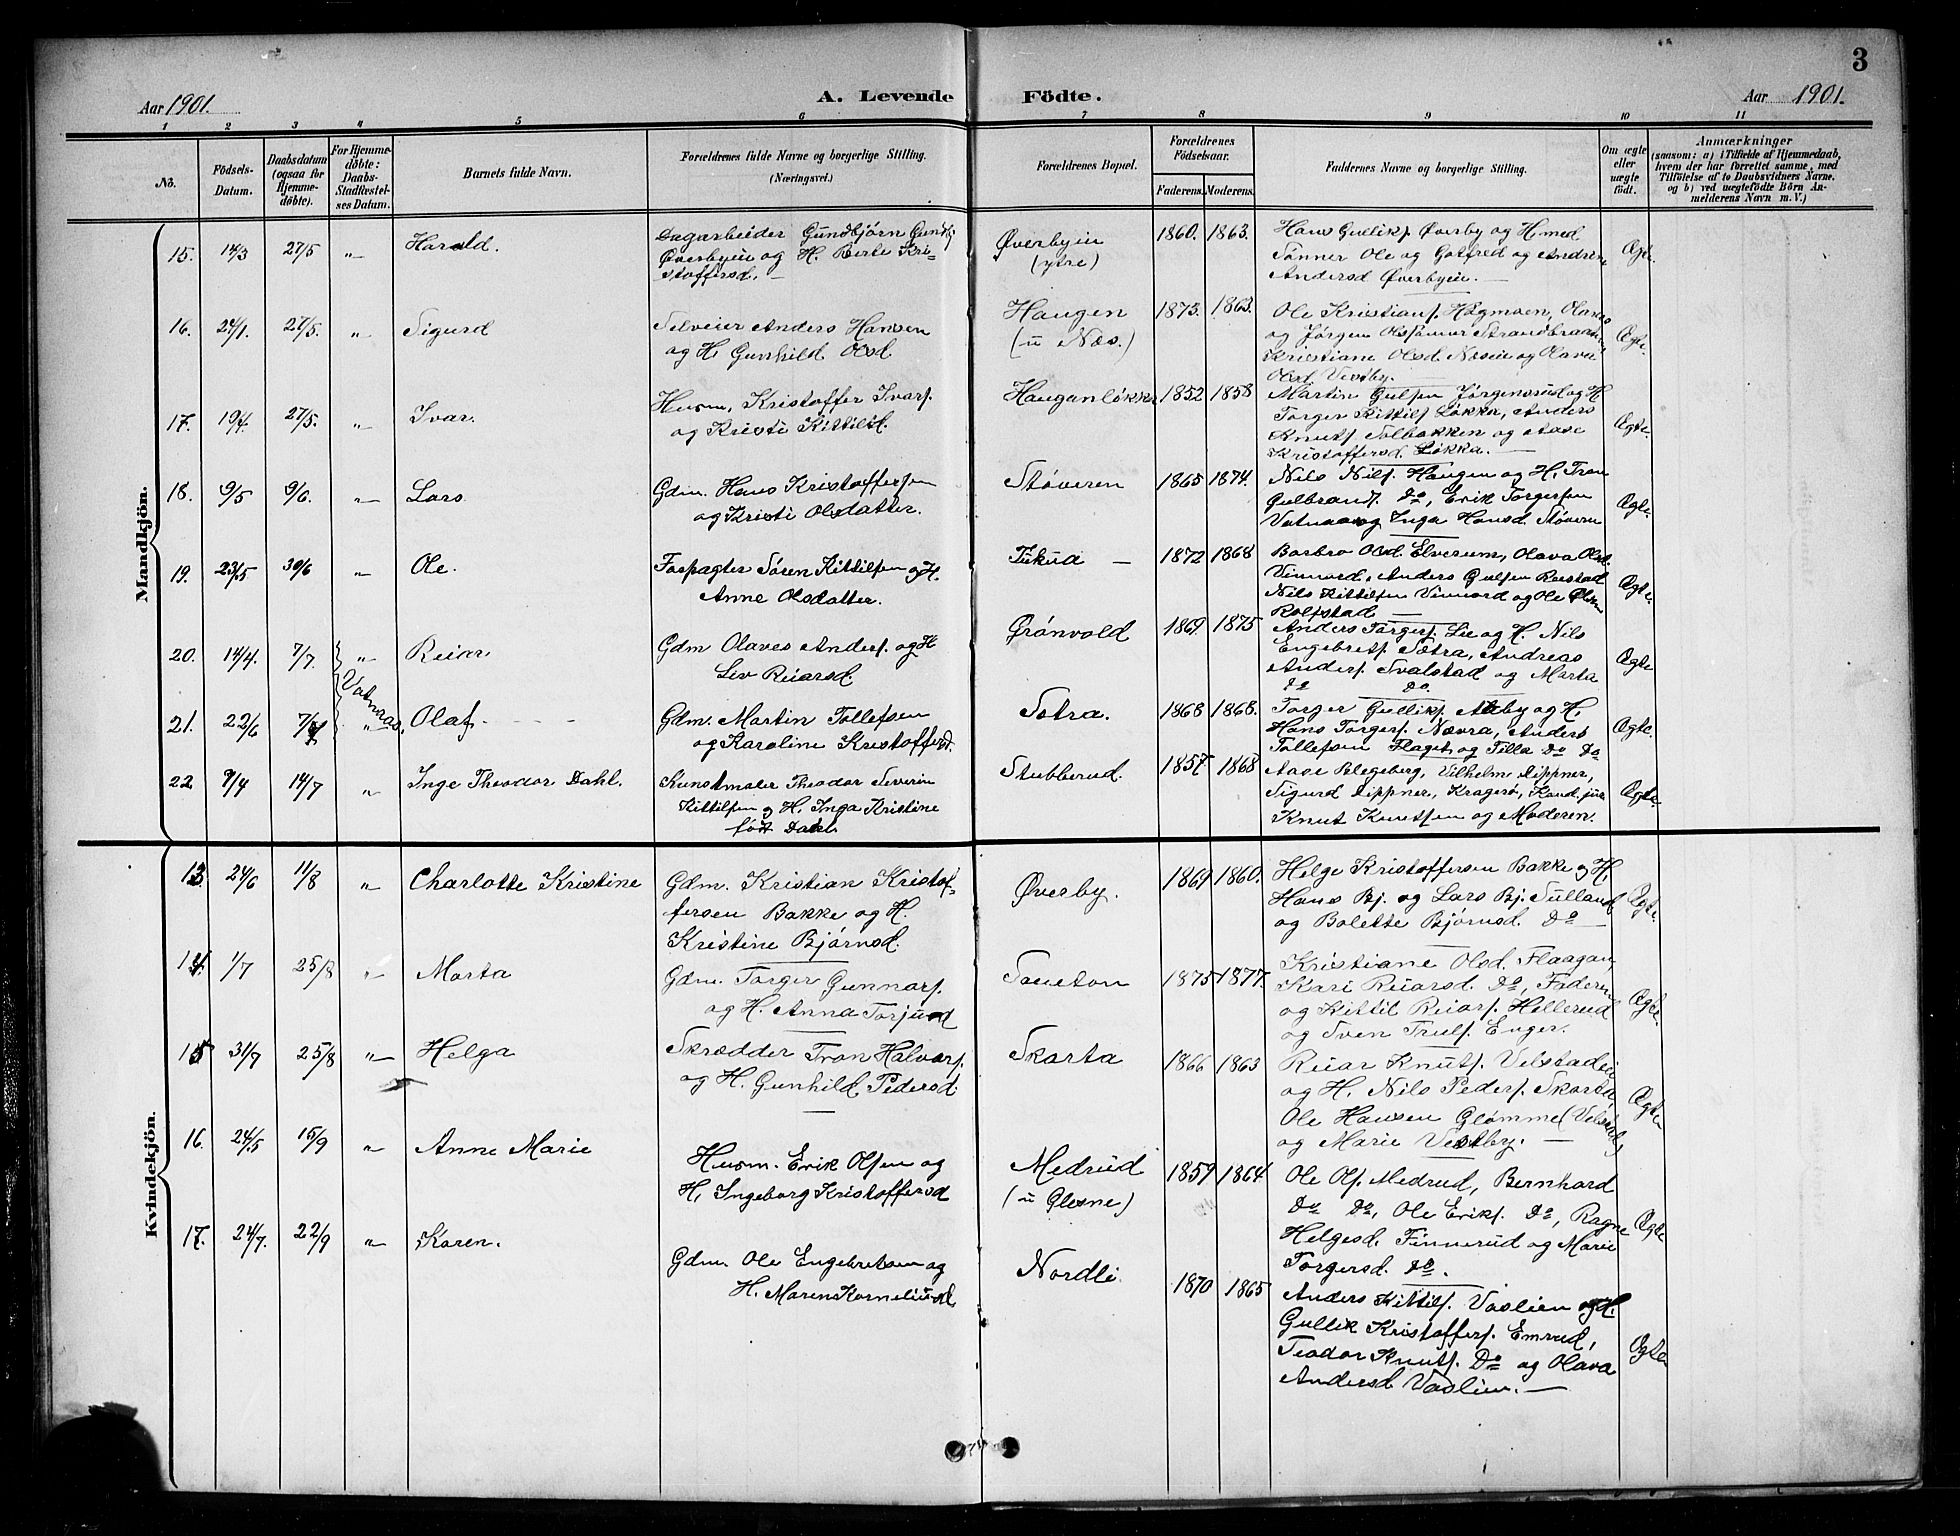 3
Aar 1901.
A. Levende Födte.
Aar 1901.
1 2 3 4 5 6 7 8 9 10 11
No.
Födsels-
Datum.
Daabsdatum
(ogsaa for
Hjemme-
döbte).
For Hjemme-
döbte:
Daabs-
Stadfæstel-
ses Datum.
Barnets fulde Navn.
Forældrenes fulde Navne og borgerlige Stilling.
(Næringsvei.)
Forældrenes Bopæl.
Forældrenes
Födselsaar.
Faderens. Moderens.
Faddernes Navne og borgerlige Stilling.
Om ægte
eller
uægte
födt.
Anmærkninger
(saasom: a) i Tilfælde af Hjemmedaab,
hvem der har forrettet samme, med
Tilföielse af to Daabsvidners Navne.
og b) ved uægtefödte Börn An-
melderens Navn m. V.)
Mandkjön.
15. 14/3 27/5 „ Harald.
Dagarbeider Gundbjörn
Øverbyeie og H. Berte Kri-
stoffersd. —
Øverbyeie
(ytre)
1860. 1863.
Hans Gulliks. Øverby og H. med
Sönner Ole og Gotfred og Andrine
Andersd Øverbyeie. —
Ægte.
16. 24/1. 27/5. „ Sigurd
Selveier Anders Hansen
og H. Gunhild Olsd
Haugen
(u Næs.)
1873. 1863.
Ole Kristians. Hagmoen, Olaus
og Jørgen
Kristiane Olsd. Næseie og Olava
Olsd Vestby.
Ægte.
17. 19/4. 27/5. „ Ivar.
Husm. Kristoffer Ivars.
og Kristi Kittilsd.
Hauganløkke
1852 1858
Martin Gulsen Jørgensrud og H
Torger Kittils. Løkka, Anders
Knuts. Solbakken og Aase
Kristoffersd. Løkka. —
Ægte.
18. 9/5 9/6. „ Lars
Gdm. Hans Kristoffersen
og Kristi Olsdatter.
Støveren
1865 1874.
Nils Nils. Haugen og H. Tron
Gulbrands. Do, Erik Torgersen
Vatnaas og Inga Hansd. Støveren
Ægte.
19. 23/5 30/6 „ Ole.
Forpagter Sören Kittilsen og H.
Anne Olsdatter.
Tukud —
1872 1868
Barbro Olsd. Elverum, Olava Olsd.
Vinnord, Anders Gulsen Rustad
Nils Kittilsen Vinnord og Ole Olsen
Rolfstad —
Ægte.
20. 14/4. 7/7. „ Reiar
Vatnaas.
Gdm Olaves Anders. og H
Liv Reiarsd.
Grönvold
1869. 1875
Anders Torgers. Lie og H. Nils
Engebrets. Sætra, Andreas
Anders. Svalstad og Marta
Do Do.
Ægte
21. 22/6 7/7 „ Olaf.
Gdm. Martin Tollefsen
og Karoline Kristoffersd.
Sætra.
1868 1868.
Torger Gulliks. Aaby og H,
Hans Torgers. Nævra, Anders
Tollefsen Flaget, og Tilla Do Do
Ægte.
22 9/4 14/7 „ Inge Theodor Dahl.
Kunstmaler Theodor Severin
Kittilsen og H. Inga Kristine
født Dahl.
Stubberud.
1857. 1868
Aase Blegeberg, Vilhelm Dippner,
Sigurd Dippner, Kragerø, Kand. jur.
Knut Knutsen og Moderen.
Ægte.
Kvindekjön.
13. 24/6 11/8 „ Charlotte Kristine
Gdm. Kristian Kristof-
fersen Bakke og H.
Kristine Bjørnsd.
Øverby.
1869 1860.
Helge Kristoffersen Bakke og H,
Hans Bj. og Lars Bj. Sulland
og Bolette Bjørnsd. Do —
Ægte.
14. 1/7 25/8 „ Marta
Gdm. Torger Gunnars.
og H. Anna Torjusd
Soneton
1875 1877.
Kristiane Olsd. Flaagan,
Kari Reiarsd. Do, Faderen
og Kittil Reiars. Hellerud
og Sven Truls. Enger.
Ægte.
15 31/7 25/8 „ Helga
Skrædder Tron Halvors.
og H. Gunhild Pedersd.
Skarta
1866 1863
Reiar Knuts. Velstadeie
og H. Nils Peders. Skarta,
Ole Hansen Glømme (Velstad)
og Marie Vestby. —
Ægte
16. 24/5 15/9 „ Anne Marie
Husm. Erik Olsen og
H. Ingeborg Kristoffersd
Medrud
(u Glesne)
1859 1864
Ole Ols. Medrud, Bernhard
Do Do, Ole Eriks. Do, Ragne
Helgesd. Finnerud og Marie
Torgersd. Do.
Ægte
17. 24/7. 22/9 „ Karen.
Gdm. Ole Engebretsen og
H. Maren Korneliusd
Nordli
1870 1865
Anders Kittils. Vaslien og H.
Gullik Kristoffers. Emrud,
Teodor Knuts. Do og Olava
Andersd Vaslien. —
Ægte